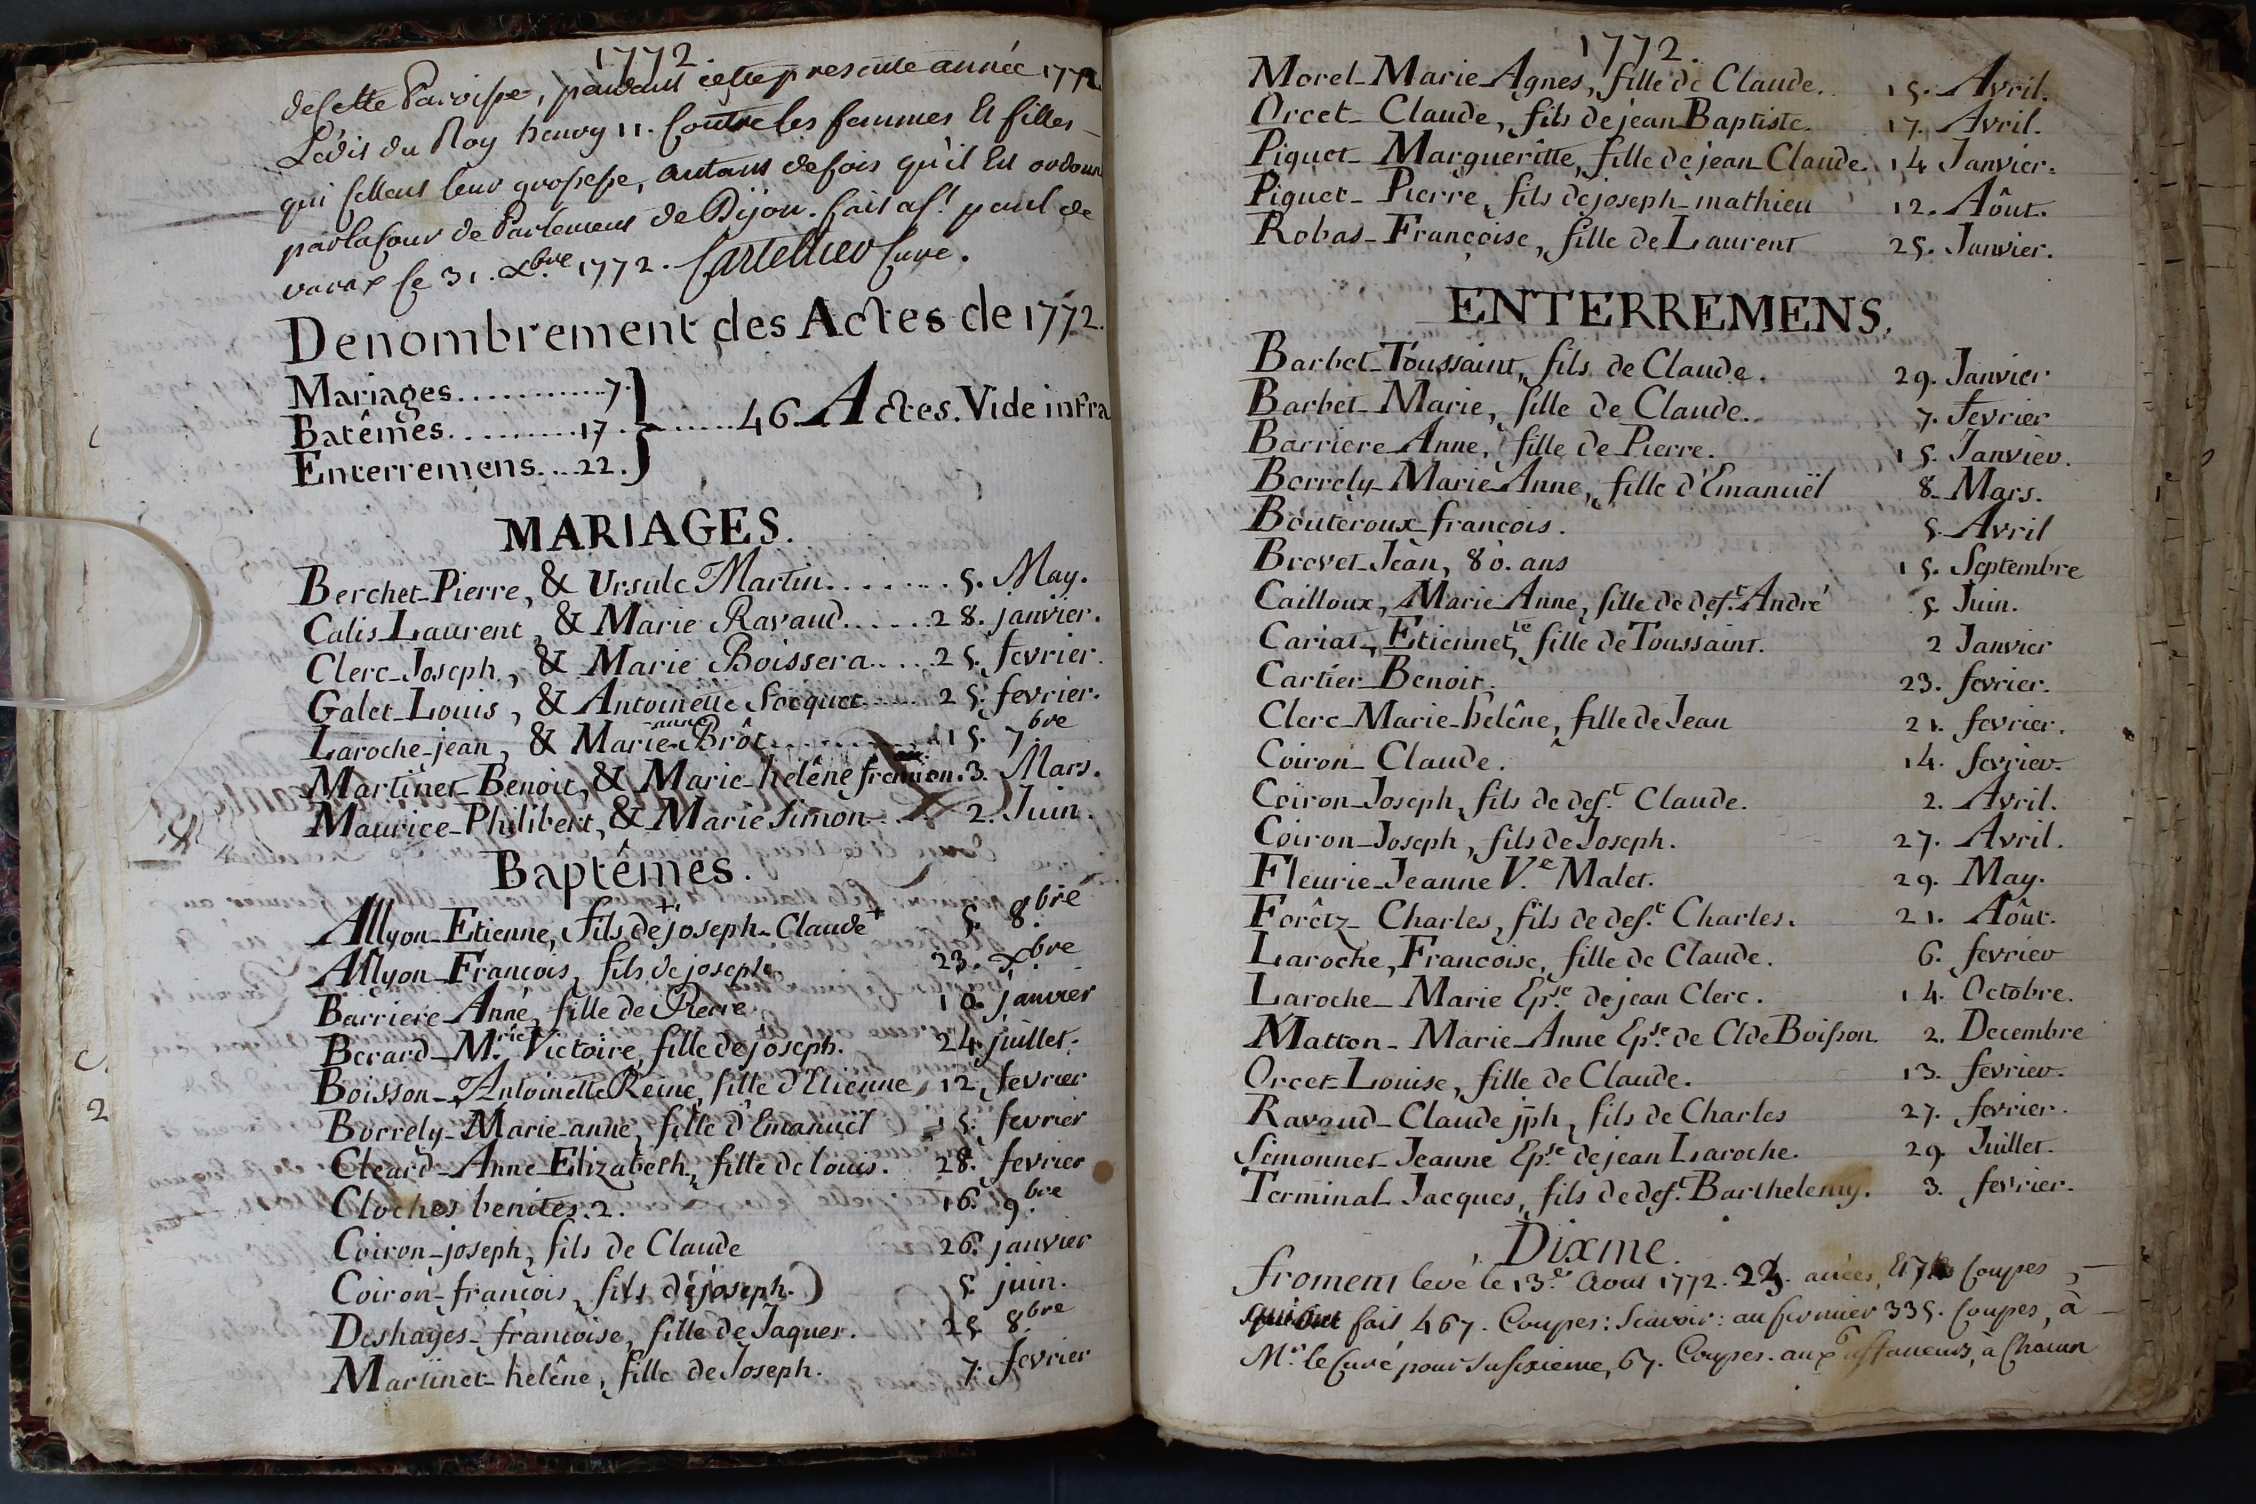 1772.
de cette Paroisse, pendant cette presente année 1772
L'edit du Roy henry 11. Contre les femmes Et filles
qui cellent leur grossesse, autant de fois qu'il Est ordonné
par la Cour de Parlement de Dijon. fait a St. paul de
varax Ce 31. Xbre 1772. Cartellier Curé.
Denombrement des Actes de 1772.
Mariages............7.
Batêmes..........17. ......46. Actes. Vide infra
Enterremens....22.
MARIAGES.
Berchet-Pierre, & Ursule Martin........5. May.
Calis-Laurent, & Marie Ravaud......28. janvier.
Clerc-Joseph, & Marie Boissera.....25. fevrier.
Galet-Louis, & Antoinette Socquet......25. fevrier.
Laroche-jean, & Marie-anne Brôt..........15. 7bre
Martinet-Benoit, & Marie-helêne 3. Mars.
Maurice-Philibert, & Marie Simon.... 2. Juin.
Baptêmes.
Allyon-Etienne, fils de joseph-Claude + 5. 8bre
Allyon-François, fils de joseph 23. Xbre
Barriere-Anne, fille de Pierre. 10. janvier
Berard-Mrie Victoire, fille de joseph. 24. juillet.
Boisson-Antoinette Reine, fille d'Etienne, 12. fevrier
Borrely-Marie-anne, fille d'Emanuel 15. fevrier
Cleard-Anne-Elizabeth, fille de louis. 28. fevrier
Cloches benites. 2. 16. 9bre
Coiron-joseph, fils de Claude 26. janvier
Coiron-françois, fils de joseph.) 5. juin.
Deshayes-françoise, fille de Jaques. 25. 8bre
Martinet-helêne, fille de Joseph. 7. fevrier
1772.
Morel-Marie-Agnes, fille de Claude. 15. Avril.
Orcet-Claude, fils de jean-Baptiste. 17. Avril.
Piquet-Margueritte, fille de jean-Claude. 14 Janvier.
Piquet-Pierre, fils de joseph-mathieu 12. Aôut.
Robas-Françoise, fille de Laurent 25. Janvier.
ENTERREMENS.
Barbet-Toussaint, fils de Claude. 29. Janvier
Barbet-Marie, fille de Claude. 7. Fevrier
Barriere Anne, fille de Pierre. 15. Janvier.
Borrely-Marie-Anne, fille d'Emanuël 8. Mars.
Bouteroux-francois. 5. Avril
Brevet-Jean, 80. ans 15. Septembre
Cailloux, Marie-Anne, fille de deft. André 5. Juin.
Cariat-Etiennette, fille de Toussaint. 2 Janvier
Cartier-Benoit. 23. fevrier.
Clerc-Marie-helêne, fille de Jean 21. fevrier.
Coiron-Claude. 14. fevrier.
Coiron-Joseph, fils de deft. Claude. 2. Avril.
Coiron-Joseph, fils de Joseph. 27. Avril.
Fleurie-Jeanne Ve. Malet. 29. May.
Forêtz-Charles, fils de deft. Charles. 21. Aôut.
Laroche, Francoise, fille de Claude. 6. fevrier
Laroche-Marie Epse. de jean Clerc. 14. Octobre.
Matton-Marie-Anne Epse. de Clde Boisson. 2. Decembre
Orcet-Louise, fille de Claude. 13. fevrier.
Ravaud-Claude jph, fils de Charles 27. fevrier.
Simonnet-Jeanne Epse. de jean Laroche. 29. Juillet.
Terminal Jacques, fils de deft. Barthelemy. 3. fevrier.
Dixme.
froment levé le 13e. Aout 1772. anées, Et Coupes
qui ont fait 467. Coupes: Scavoir: au fermier 335. Coupes, à
Mr. le Curé pour Sa Sixieme, 67. Coupes. aux 6 affaneurs, à Chacun
2